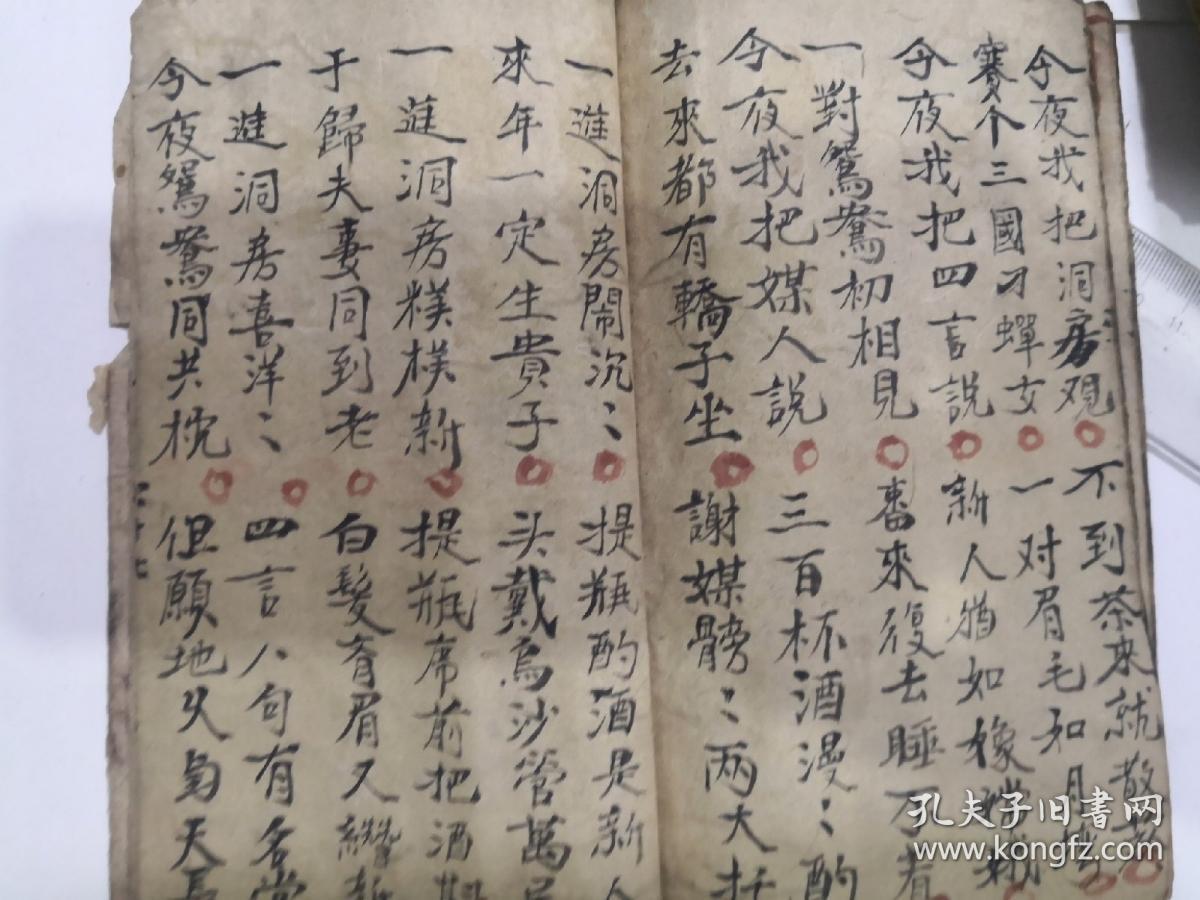 今夜我把洞房观 不到茶來就散
賽个三國刁蟬女 一对眉毛如月
今夜我把四言說 新人猶如
一對鴛鴦初相見 番來復去睡不着
今夜我把媒人説 三百杯酒漫〻酌
去來都有轎子坐 謝媒膀〻兩大
一進洞房鬧沉〻 提瓶酌酒是新人
來年一定生貴子 头戴烏沙管萬
一進洞房樸樸新 提瓶席前把酒
于歸夫妻同到老 白髮齊眉又
一進洞房喜洋〻 四言八句有名堂
今夜鴛鴦同共枕 但願地久与天長
孔夫子旧书网
www.kongfz.com